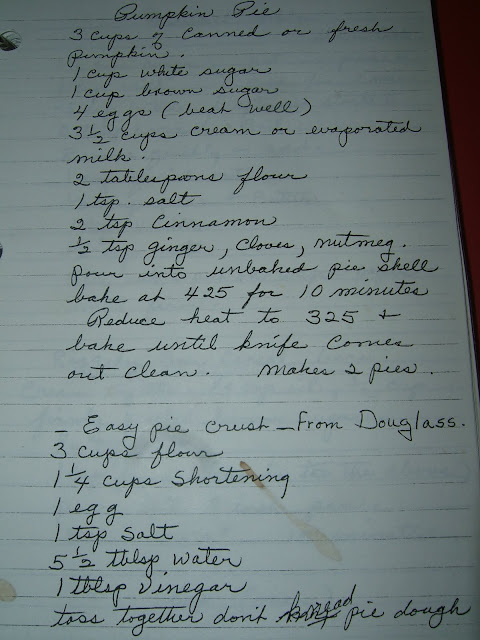 Pumpkin Pie
3 cups of canned or fresh
pumpkin.
1 cup white sugar
1 cup brown sugar
4 eggs (beat well)
3 1/2 cups cream or evaporated
milk.
2 tablespoons flour
1 tsp. salt
2 tsp Cinnamon
1/2 tsp ginger, cloves, nutmeg.
pour into unbaked pie shell
bake at 425 for 10 minutes
Reduce heat to 325 +
bake until knife comes
out clean. Makes 2 pies.
- Easy pie crust - From Douglass.
3 cups flour
1 1/4 cups Shortening
1 egg
1 tsp Salt
5 1/2 tblsp water
1 tblsp Vinegar
toss together don't knead pie dough